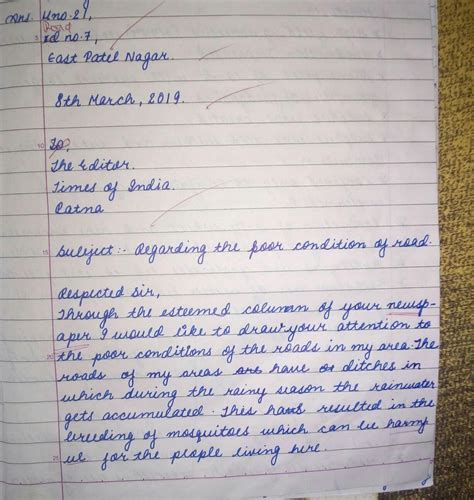 Ans. H no. 21,
Road
rd no. 7,
East Patel Nagar.
8th March, 2019.
10 To,
The Editor.
Times of India.
Patna
15 Subject:- Regarding the poor condition of road.
Respected Sir,
Through the esteemed column of your newsp-
aper I would like to draw your attention to
20 the poor conditions of the roads in my area. The
roads of my areas have ditches in
which during the rainy season the rainwater
gets accumulated. This has resulted in the
breeding of mosquitoes which can be harmf
25 ul for the people living here.